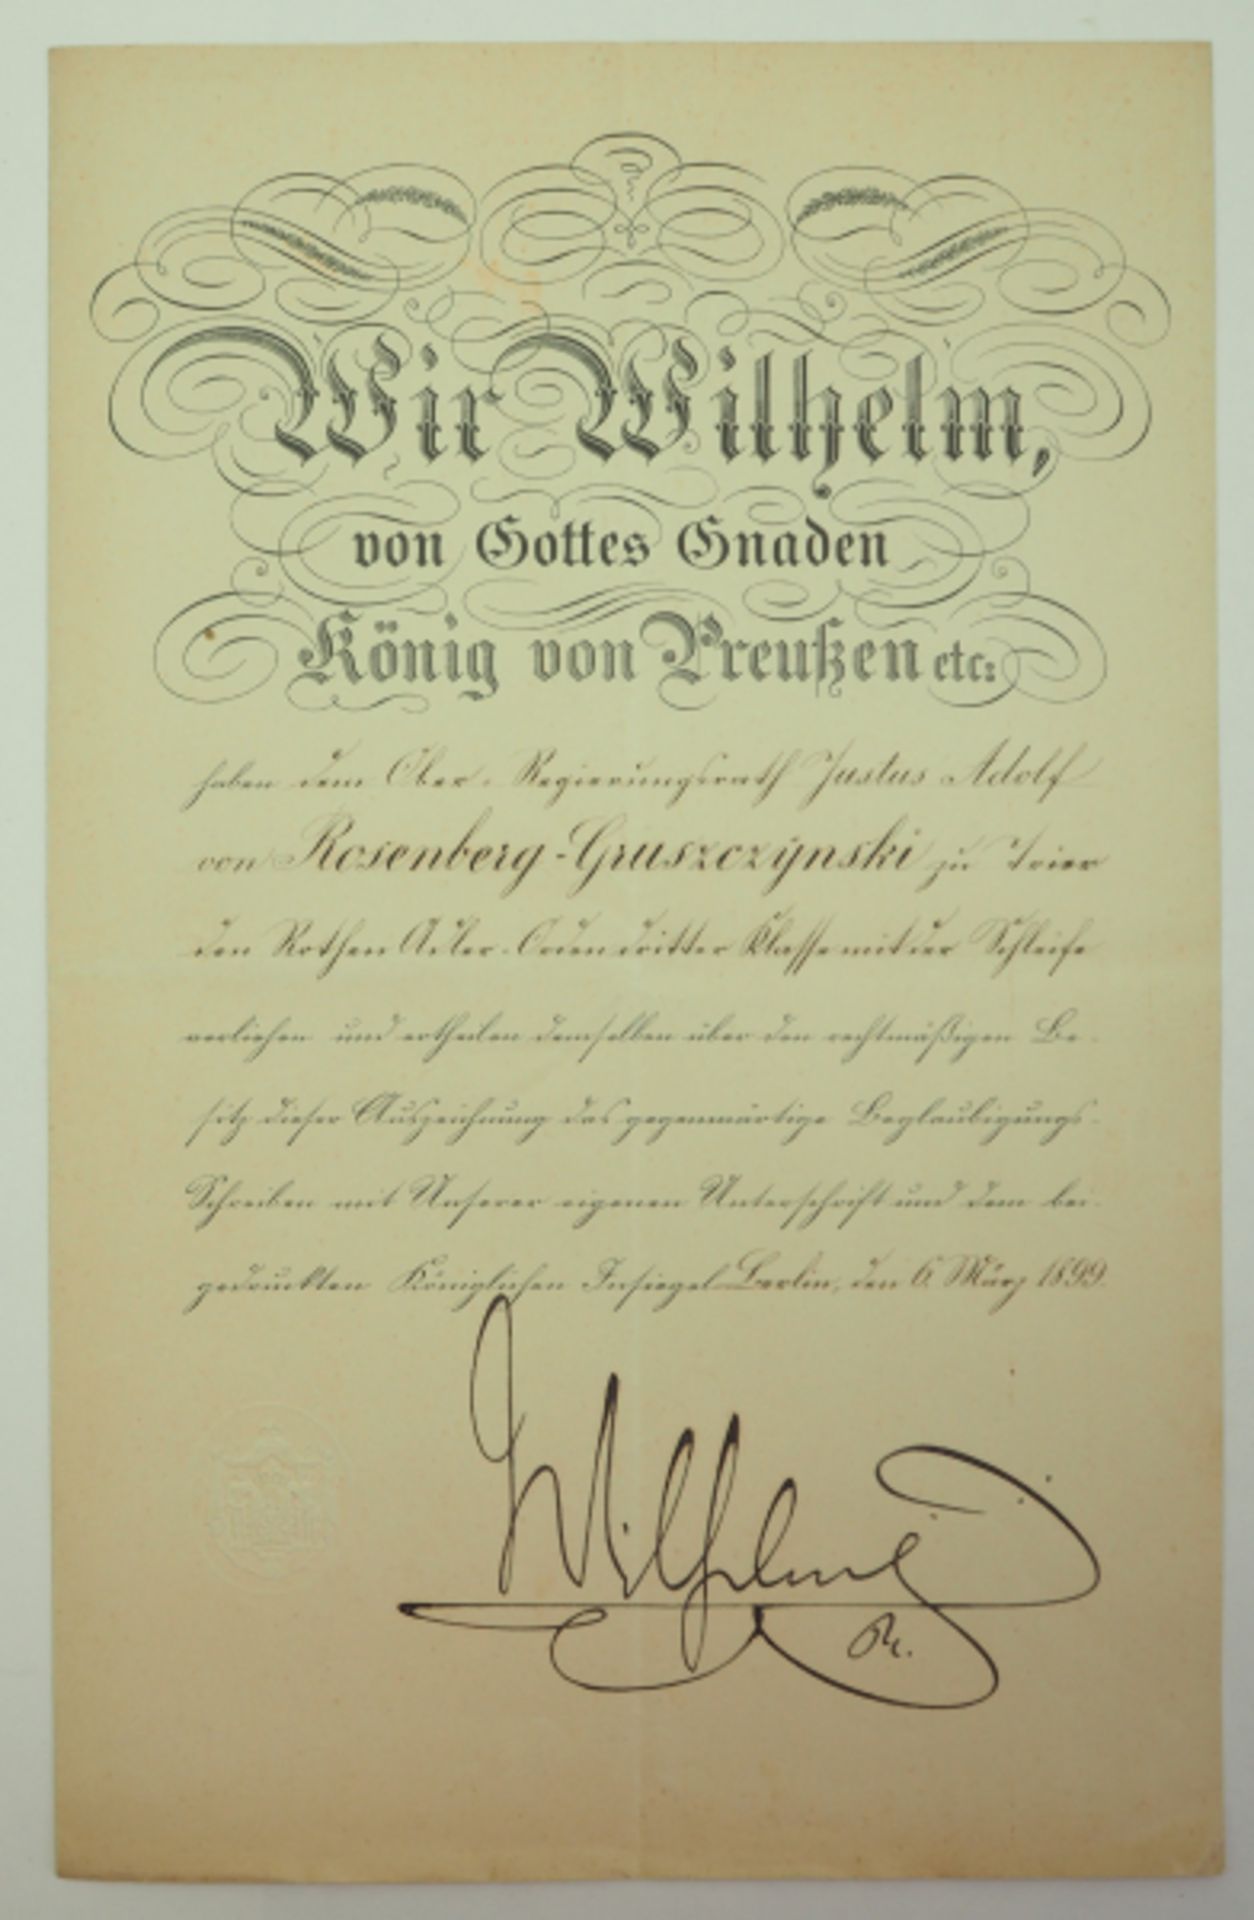 Wir Wilhelm,
von Gottes Gnaden
König von Preußen etc:
haben dem Ober-Regierungsrath Justus Adolf
von Rosenberg-Gruszczynski zu Trier
den Rothen Adler-Orden dritter Klasse mit der Schleife
verliehen und ertheilen demselben über den rechtmäßigen Be-
sitz dieser Auszeichnung das gegenwärtige Beglaubigungs-
Schreiben mit Unserer eigenen Unterschrift und dem bei-
gedruckten Königlichen Insiegel. Berlin, den 6. März 1899.
Wilhelm
R.